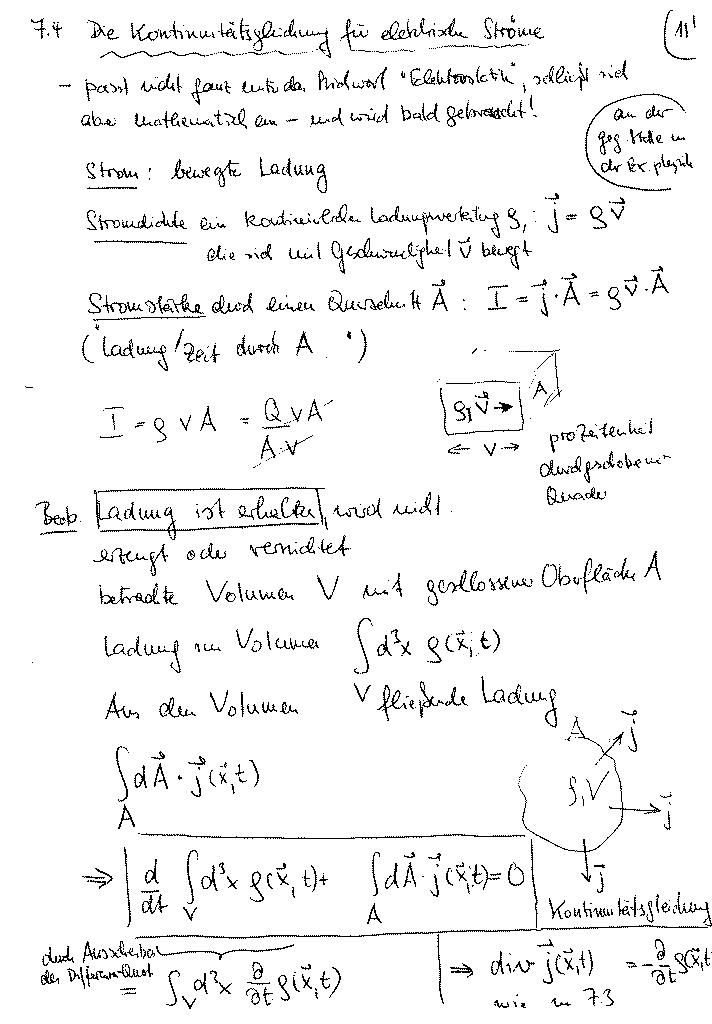 7.4 Die Kontinuitätsgleichung für elektrische Ströme
11'
- passt nicht ganz unter das "Elektrostatik", schließt sich
aber mathematisch an - und wird bald gebraucht!
an der
geg. Stelle in
der Ex. physik
Strom: bewegte Ladung
Stromdichte ein kontinuierlicher Ladungsverteilung ρ, : j⃗ = ρ v⃗
die sich mit Geschwindigkeit v⃗ bewegt
Stromstärke durch einen Querschnitt A⃗ : I = j⃗ · A⃗ = ρ v⃗ · A⃗
("Ladung/Zeit durch A")
I = ρ v A = Q v A / A · v
ρ, v⃗ →
A
← v →
pro Zeiteinheit
durchgeschobener
Quader
Beob. Ladung ist erhalten, wird nicht
erzeugt oder vernichtet
betrachte Volumen V mit geschlossener Oberfläche A
Ladung im Volumen ∫_V d³x ρ(x⃗,t)
Aus dem Volumen fließende Ladung
∫_A dA⃗ · j⃗(x⃗,t)
A
ρ, V
j⃗
j⃗
j⃗
⇒ d/dt ∫_V d³x ρ(x⃗,t) + ∫_A dA⃗ · j⃗(x⃗,t) = 0
Kontinuitätsgleichung
durch Ausschreiben
des Differenzenquot
= ∫_V d³x ∂/∂t ρ(x⃗,t)
⇒ div j⃗(x⃗,t) = -∂/∂t ρ(x⃗,t
wie in 7.3